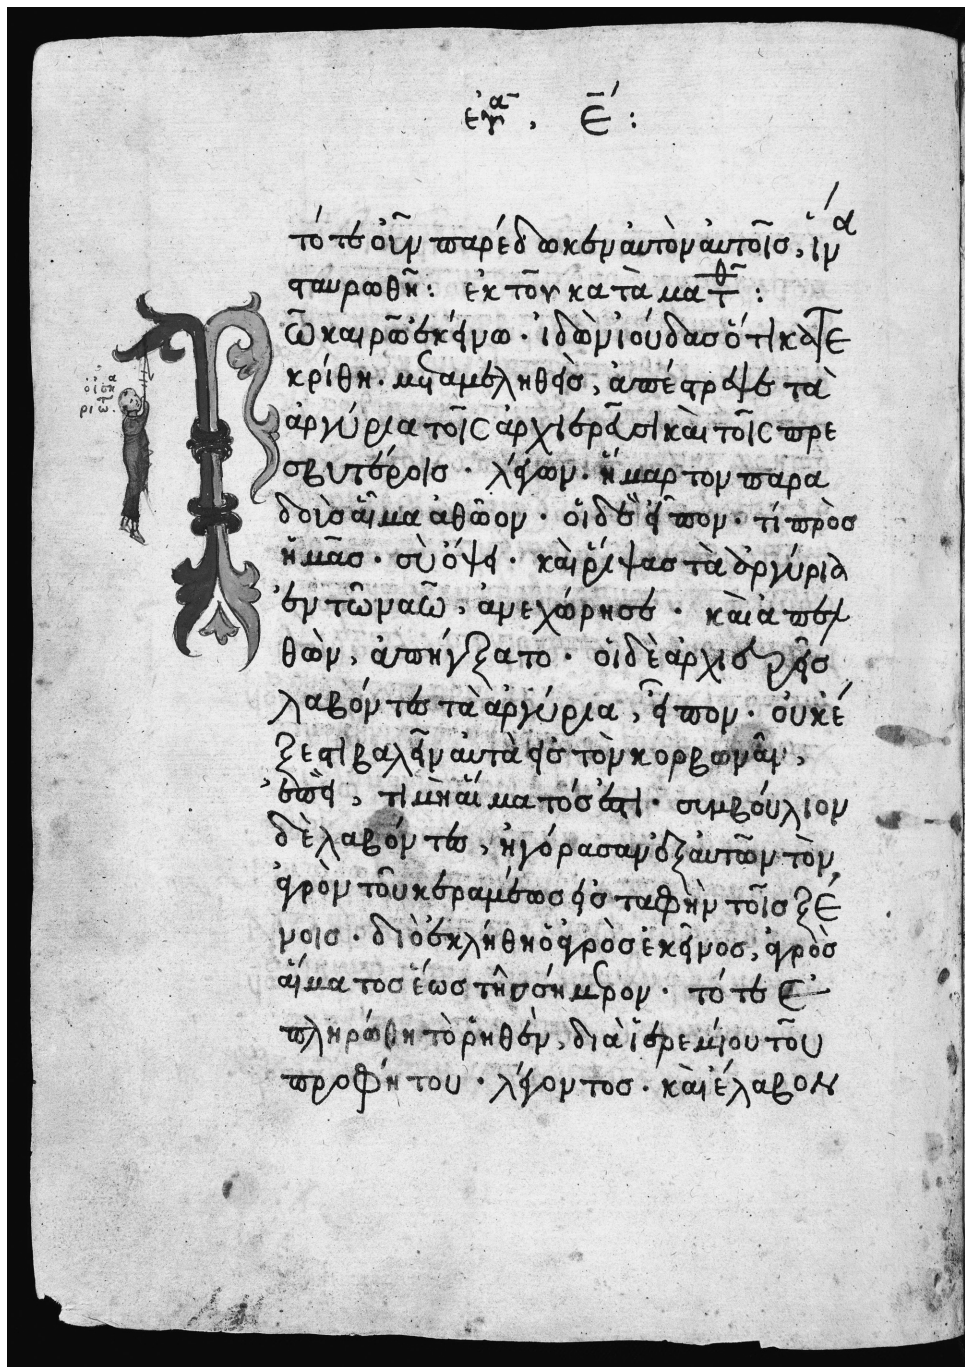 εὐαγ, Ε:
τότε οὖν παρέδωκεν αὐτὸν αὐτοῖς, ἵνα
σταυρωθῆ: ἐκ τοῦ κατὰ ματθ:
Τῶ καιρῶ ἐκείνω · ἰδὼν ἰούδας ὅτι κατε
κρίθη · μεταμεληθεὶς, ἀπέστρεψε τὰ
ἀργύρια τοῖς ἀρχιερεῦσι καὶ τοῖς πρε
σβυτέροις · λέγων · ἥμαρτον παρα
δοὺς αἷμα ἀθῶον · οἱ δὲ εἶπον · τί πρὸς
ἡμᾶς · σὺ ὄψει · καὶ ῥίψας τὰ ἀργύρια
ἐν τῶ ναῶ, ἀνεχώρησε · καὶ ἀπελ
θὼν, ἀπήγξατο · οἱ δὲ ἀρχιερεῖς
λαβόντες τὰ ἀργύρια, εἶπον · οὐκ ἔ
ξεστι βαλεῖν αὐτὰ εἰς τὸν κορβωνᾶν,
ἐπεὶ, τιμὴ αἵματός ἐστι · συμβούλιον
δὲ λαβόντες, ἠγόρασαν ἐξ αὐτῶν τὸν
ἀγρὸν τοῦ κεραμέως εἰς ταφὴν τοῖς ξέ
νοις · διὸ ἐκλήθη ὁ ἀγρὸς ἐκεῖνος, ἀγρὸς
αἵματος ἕως τῆς σήμερον · τότε ἐ
πληρώθη τὸ ῥηθὲν, διὰ ἰερεμίου τοῦ
προφήτου · λέγοντος · καὶ ἔλαβον